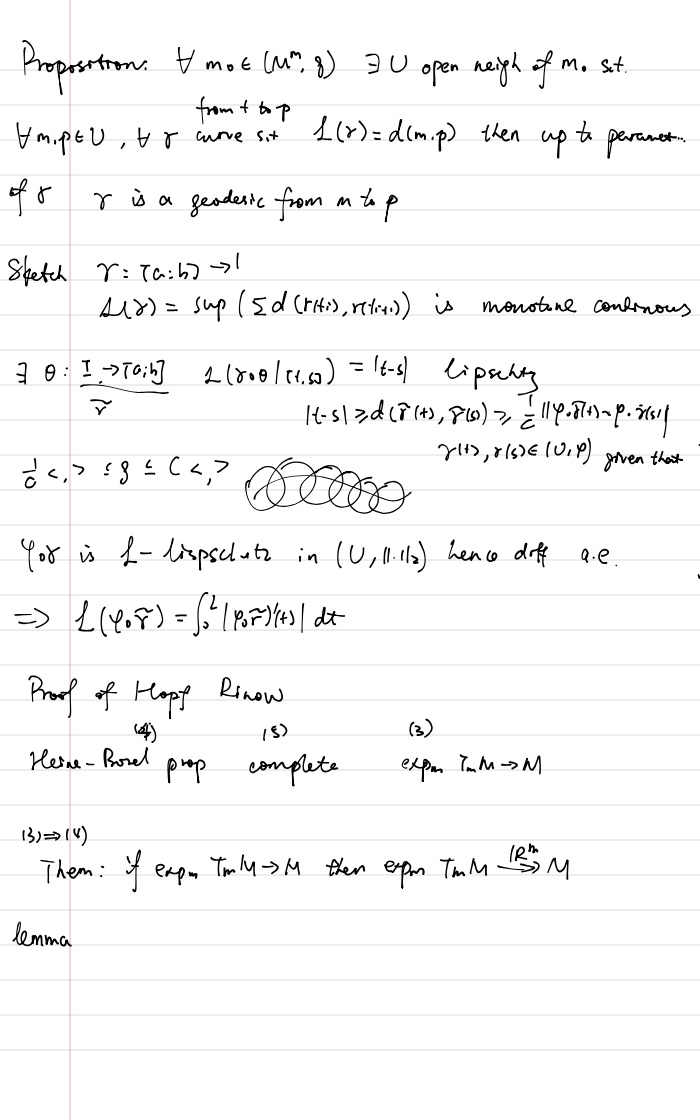 Proposition: ∀ m₀ ∈ (Mᵐ, g) ∃ U open neigh of m₀ s.t.
from t to p
∀ m,p ∈ U, ∀ γ curve s.t L(γ) = d(m,p) then up to paramet..
of γ γ is a geodesic from m to p
Sketch γ: [a;b] →
L(γ) = sup (Σ d(γ(ti), γ(ti+1)) is monotone continous
∃ θ: I → [a;b] L(γ∘θ|[t,s]) = |t-s| lipschtz
γ̃
|t-s| ≥ d(γ̃(t), γ̃(s)) ≥ 1/C ||φ∘γ̃(t) - φ∘γ̃(s)||
γ(t), γ(s) ∈ (U,φ) given that
1/C <,> ≤ g ≤ C <,>
φ∘γ is L-lispschtz in (U, ||.||₂) hence diff a.e.
=> L(φ∘γ̃) = ∫₀ᴸ |φ∘γ̃)'(t)| dt
Proof of Hopf Rinow
(4) (5) (3)
Heine-Borel prop complete expm TmM → M
(3) => (4)
Them: if expm TmM → M then expm TmM ↠ M
lemma